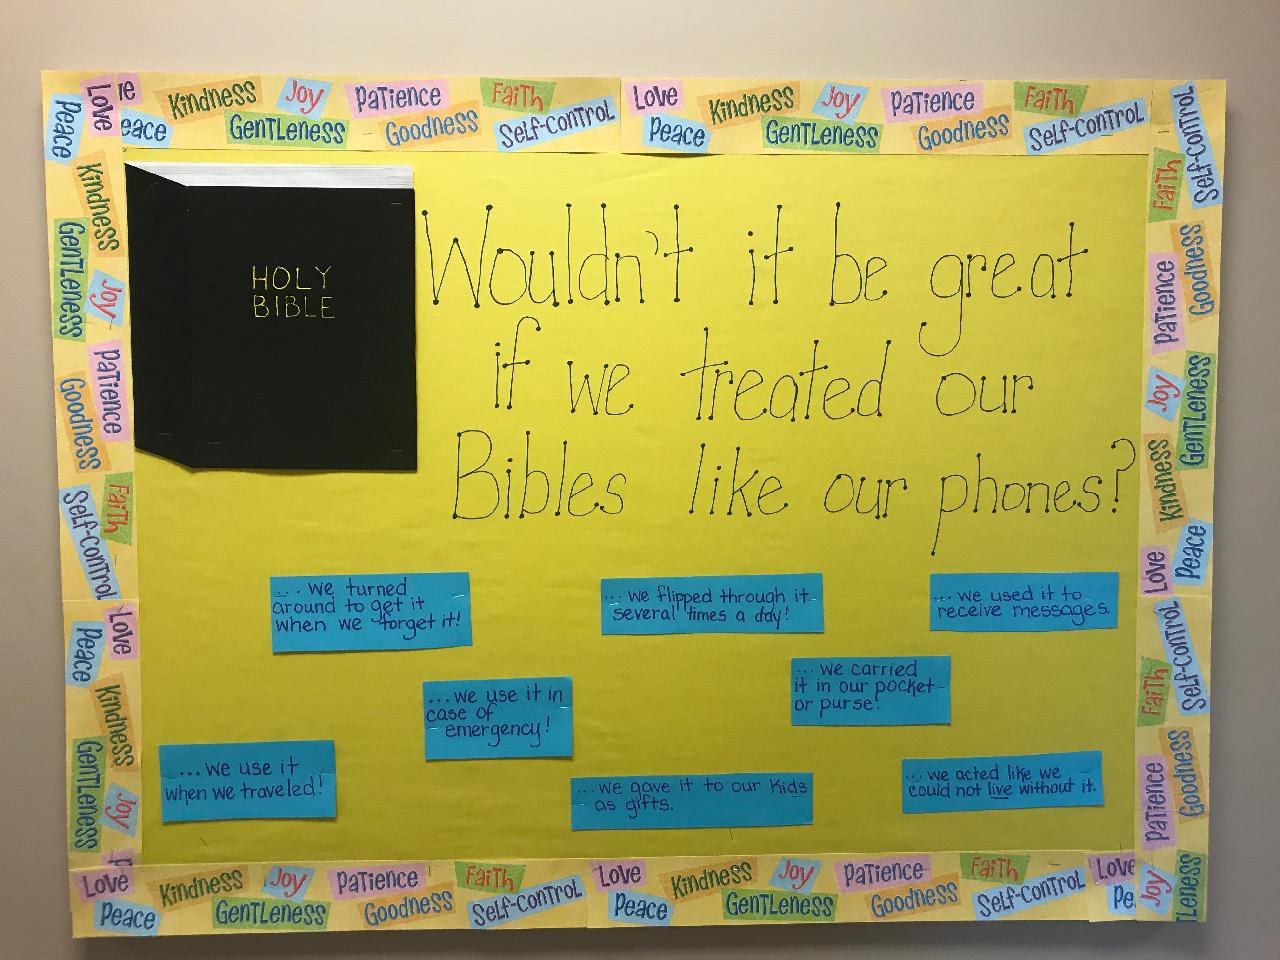 Love Kindness Joy Patience Faith Love Kindness Joy Patience Faith
Peace Gentleness Goodness Self-Control Peace Gentleness Goodness Self-Control
HOLY
BIBLE
Wouldn't it be great
if we treated our
Bibles like our phones?
... we turned
around to get it
when we forget it!
... we flipped through it
several times a day!
... we used it to
receive messages.
... we use it in
case of
emergency!
... we carried
it in our pocket
or purse!
... we use it
when we traveled!
... we gave it to our kids
as gifts.
... we acted like we
could not live without it.
Love
Peace
Kindness
Gentleness
Joy
Patience
Goodness
Faith
Self-Control
Love
Peace
Kindness
Gentleness
Joy
Self-Control
Faith
Goodness
Patience
Joy
Gentleness
Kindness
Peace
Love
Self-Control
Faith
Goodness
Patience
Joy
Love Kindness Joy Patience Faith Love Kindness Joy Patience Faith Love
Peace Gentleness Goodness Self-Control Peace Gentleness Goodness Self-Control